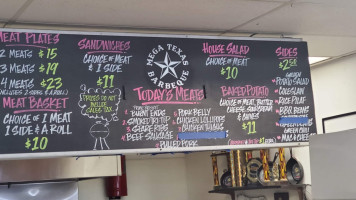 MEAT PLATES
2 MEATS $15
3 MEATS $19
4 MEATS $23
(INCLUDES 2 SIDES & A ROLL)
MEAT BASKET
CHOICE OF 1 MEAT
1 SIDE & A ROLL
$10
SANDWICHES
CHOICE OF MEAT
& 1 SIDE
$11
PRICES DO NOT
INCLUDE
SALES TAX
MEGA TEXAS
BARBECUE
TODAY'S MEATS
BURNT ENDS
SMOKED TRI TOP
SPARE RIBS
BEEF SAUSAGE
PORK BELLY
CHICKEN LOLLIPOPS
CHICKEN THIGHS
PULLED PORK
HOUSE SALAD
CHOICE OF MEAT
$10
BAKED POTATO
CHOICE OF MEAT, BUTTER
CHEESE, SOUR CREAM
& ONIONS
$11
SIDES
$2.50
GREEN
POTATO SALAD
COLESLAW
RICE PILAF
BBQ BEANS
GREEN CHILI